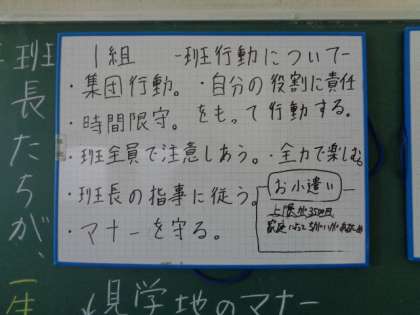 1組 -班行動について-
・集団行動。・自分の役割に責任
をもって行動する。
・時間限守。
・班全員で注意しあう。・全力で楽しむ。
・班長の指事に従う。
・マナーを守る。
お小遣い
上限が3500円
班長たちが、
一生
見学地のマナー